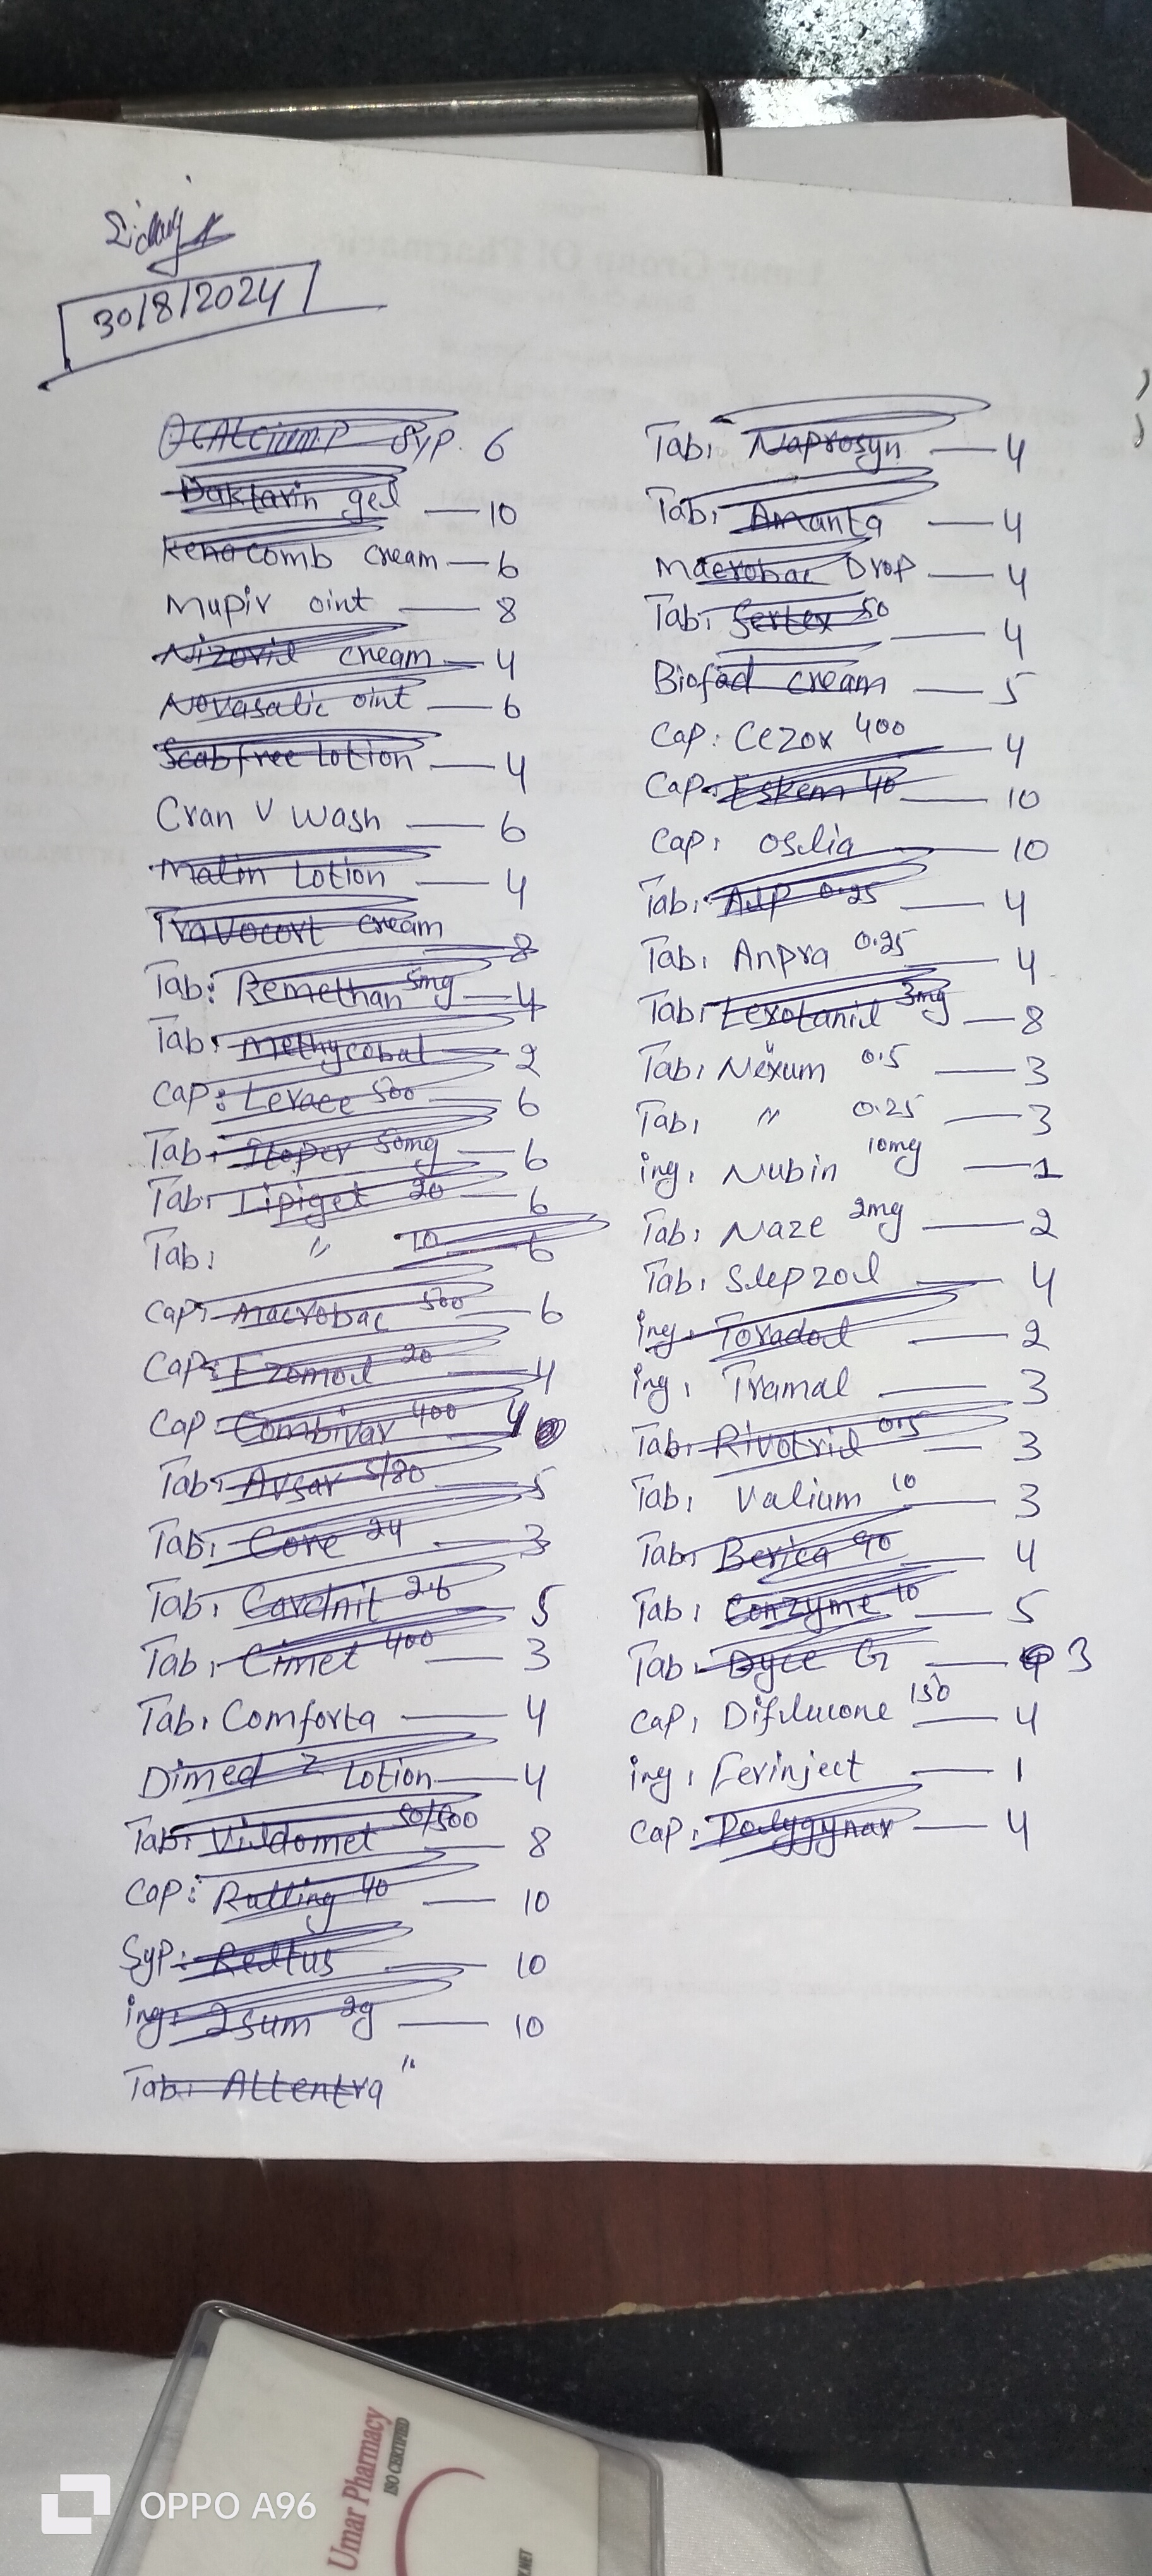 30/8/2024
Qcalcium P Syp. 6
Daktarin gel — 10
Kenacomb cream — 6
Mupir oint — 8
Nizoril cream — 4
Novasalic oint — 6
Scabfree Lotion — 4
Cran V Wash — 6
Malin Lotion — 4
Travocort cream — 8
Tab: Remethan 5mg — 4
Tab: Methycobal — 2
Cap: Lerace 500 — 6
Tab: 50mg — 6
Tab: Lipiget 20 — 6
Tab: " 10 — 6
Cap: Macrobac 500 — 6
Cap: Ezomol 20 — 4
Cap Combivar 400 4
Tab: Avsar 5/80 5
Tab: Core 24 — 3
Tab: Cardnit 2.6 5
Tab: Cimet 400 — 3
Tab: Comforta — 4
Dimed 2 Lotion — 4
Tab: Vildomet 50/500 8
Cap: Rulling 40 — 10
Syp: Reltus — 10
ing: 2sum 2g — 10
Tab: Attentra "
Tab: Naprosyn — 4
Tab: Amanta — 4
Macrobac Drop — 4
Tab: Sertex 50 — 4
Biofad cream — 5
Cap: Cezox 400 — 4
Cap: Eskem 40 — 10
Cap: Oslia — 10
Tab: Alp 0.25 — 4
Tab: Anpra 0.25 — 4
Tab: Lexotanil 3mg — 8
Tab: Nexum 0.5 — 3
Tab: " 0.25 — 3
ing: Nubin 10mg — 1
Tab: Naze 2mg — 2
Tab: Slepzol — 4
ing: Toradol — 2
ing: Tramal — 3
Tab: Rivotril 0.5 — 3
Tab: Valium 10 — 3
Tab: Berica 90 — 4
Tab: Conzyme 10 — 5
Tab: Dyce G — 3
Cap: Diflucone 150 — 4
ing: Ferinject — 1
Cap: Polygynax — 4
Umar Pharmacy
ISO CERTIFIED
OPPO A96